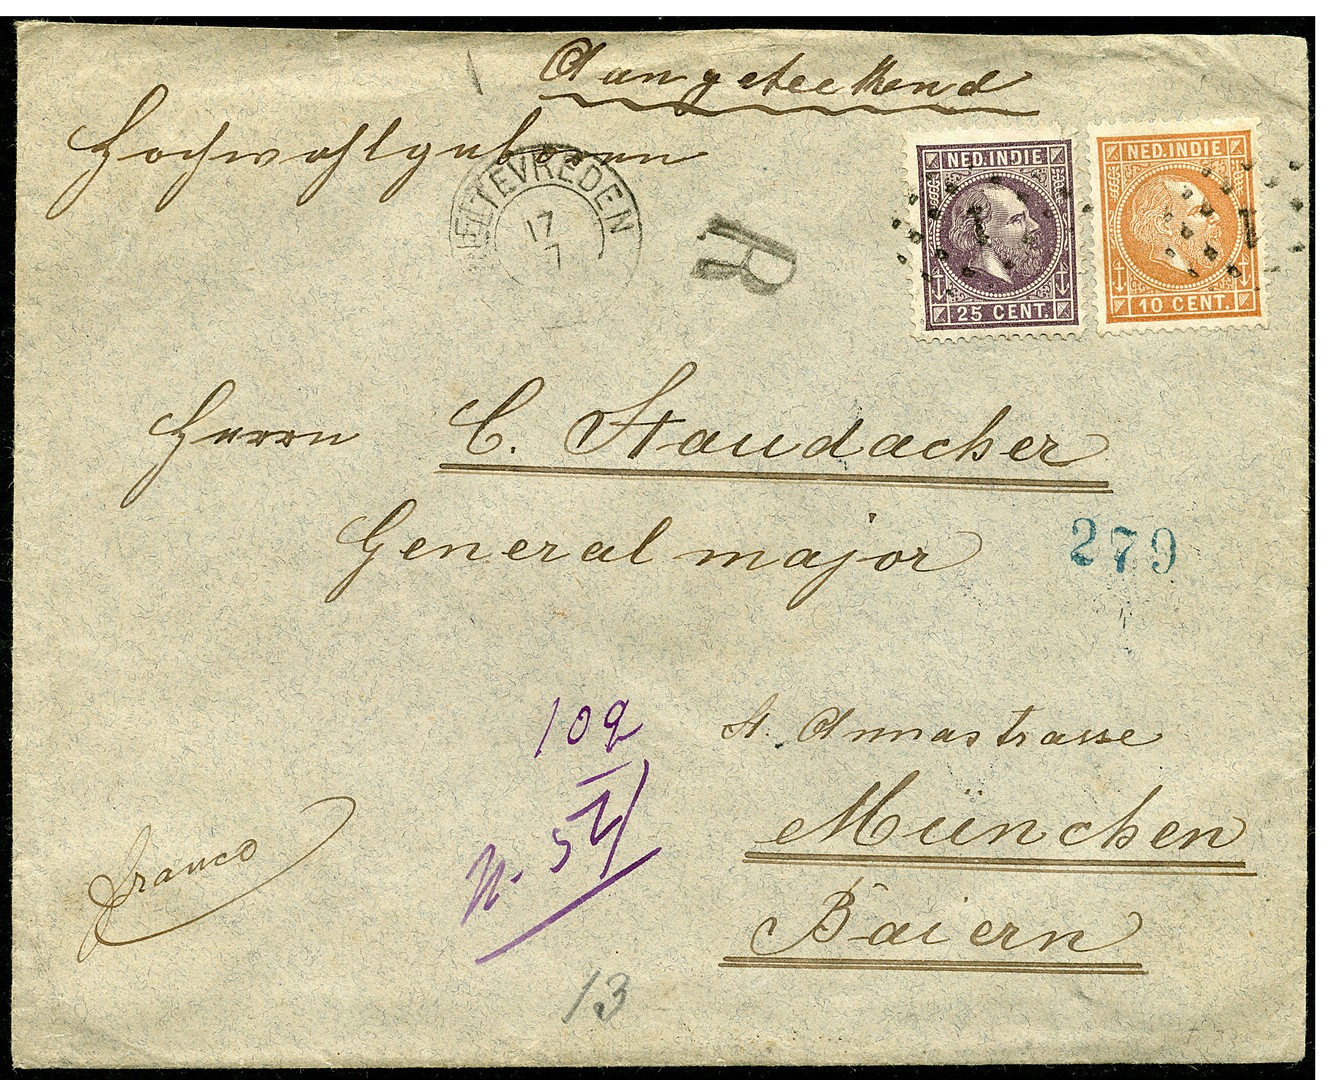 Aangeteekend
Hochwohlgeboren
WELTEVREDEN
17
7
R
NED. INDIE
25 CENT.
NED. INDIE
10 CENT.
1
1
Herrn C. Staudacher
Generalmajor
279
102
N. 52
St. Annastrasse
München
Baiern
franco
13